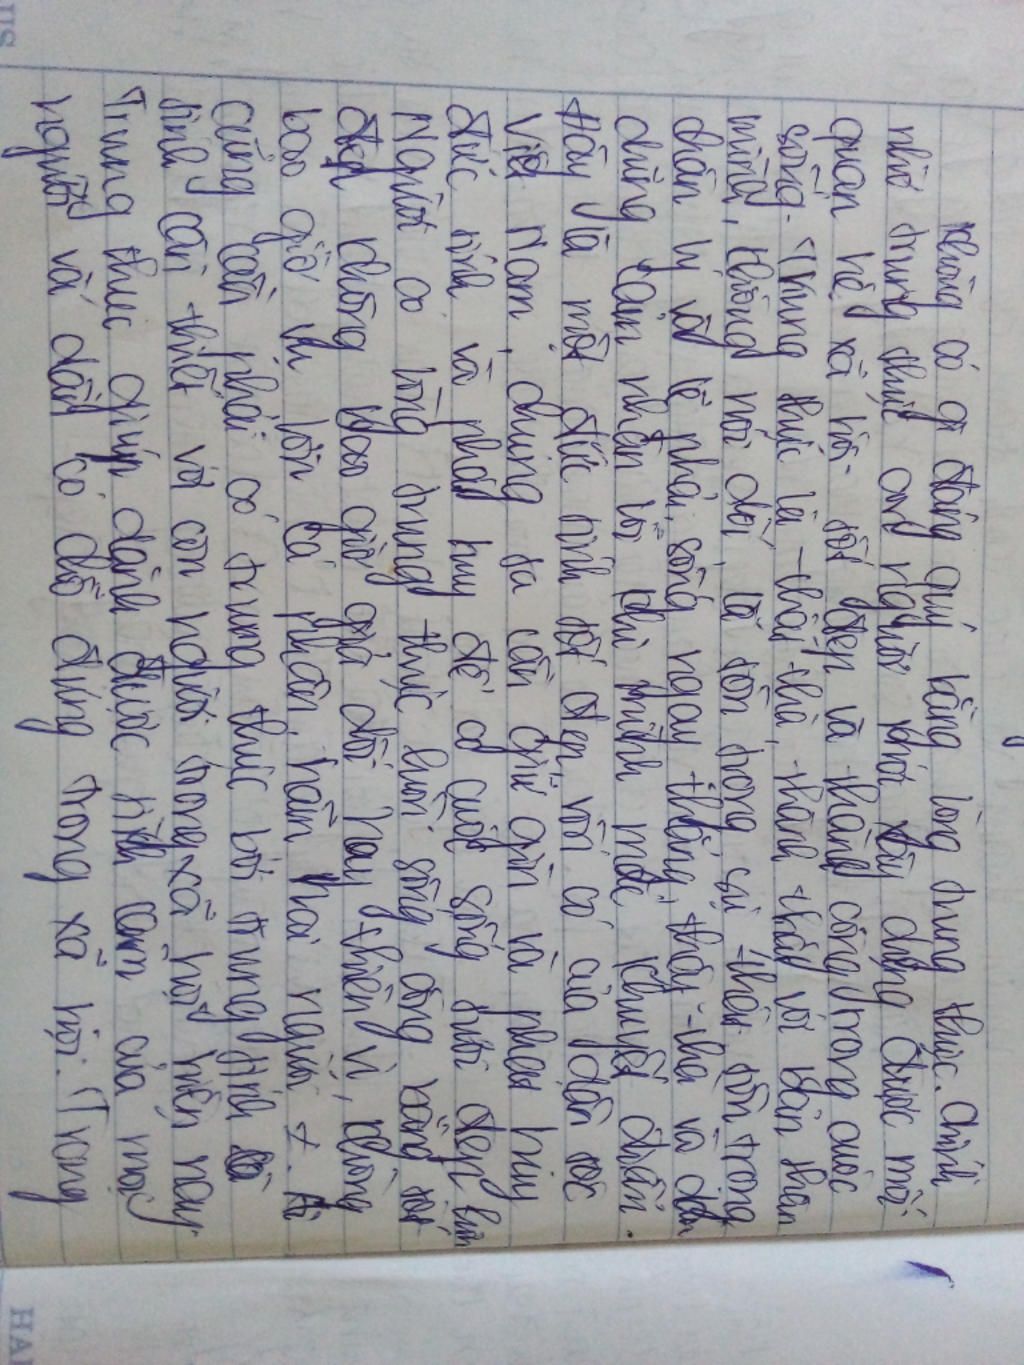 Không có gì đáng quý bằng lòng trung thực. Chính
nhờ trung thực con người mới xây dựng được mối
quan hệ xã hội tốt đẹp và thành công trong cuộc
sống. Trung thực là thật thà, thành thật với bản thân
mình, không nói dối, là tôn trọng sự thật, tôn trọng
chân lý và lẽ phải, sống ngay thẳng, thật thà và dám
dũng cảm nhận lỗi khi mình mắc khuyết điểm.
Đây là một đức tính tốt đẹp vốn có của dân tộc
Việt Nam, chúng ta cần giữ gìn và phát huy
đức tính và phát huy để cuộc sống tươi đẹp hơn
Người có lòng trung thực luôn sống công bằng tốt
đẹp không bao giờ giả dối hay thiên vị, không
bao giờ vụ lợi cá nhân, hãm hại người ≠.
cũng cần phải có trung thực bởi trung tính là
tính cần thiết với con người trong xã hội hiện nay
Trung thực giúp dành được tình cảm của mọi
người và dần có chỗ đứng trong xã hội. Trong
HAI